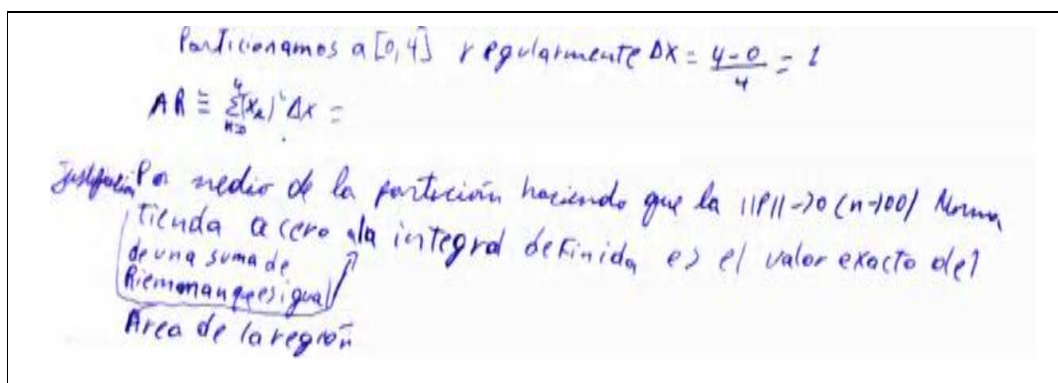 Particionamos a [0,4] regularmente Δx = 4-0/4 = 1
AR ≅ Σ(x_k)² Δx =
Justificación Por medio de la partición haciendo que la ||P||->0 (n->00) Norma
tienda a cero a la integral definida es el valor exacto del
de una suma de
Riemman que es igual
Area de la región